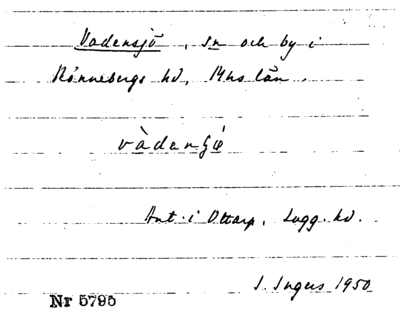 Vadensjö, sn och by i
Rönnebergs hd, Mhs län.
vàdenʃö
Ant. i Ottarp, Lugg. hd.
I. Ingers 1950
Nr 5795